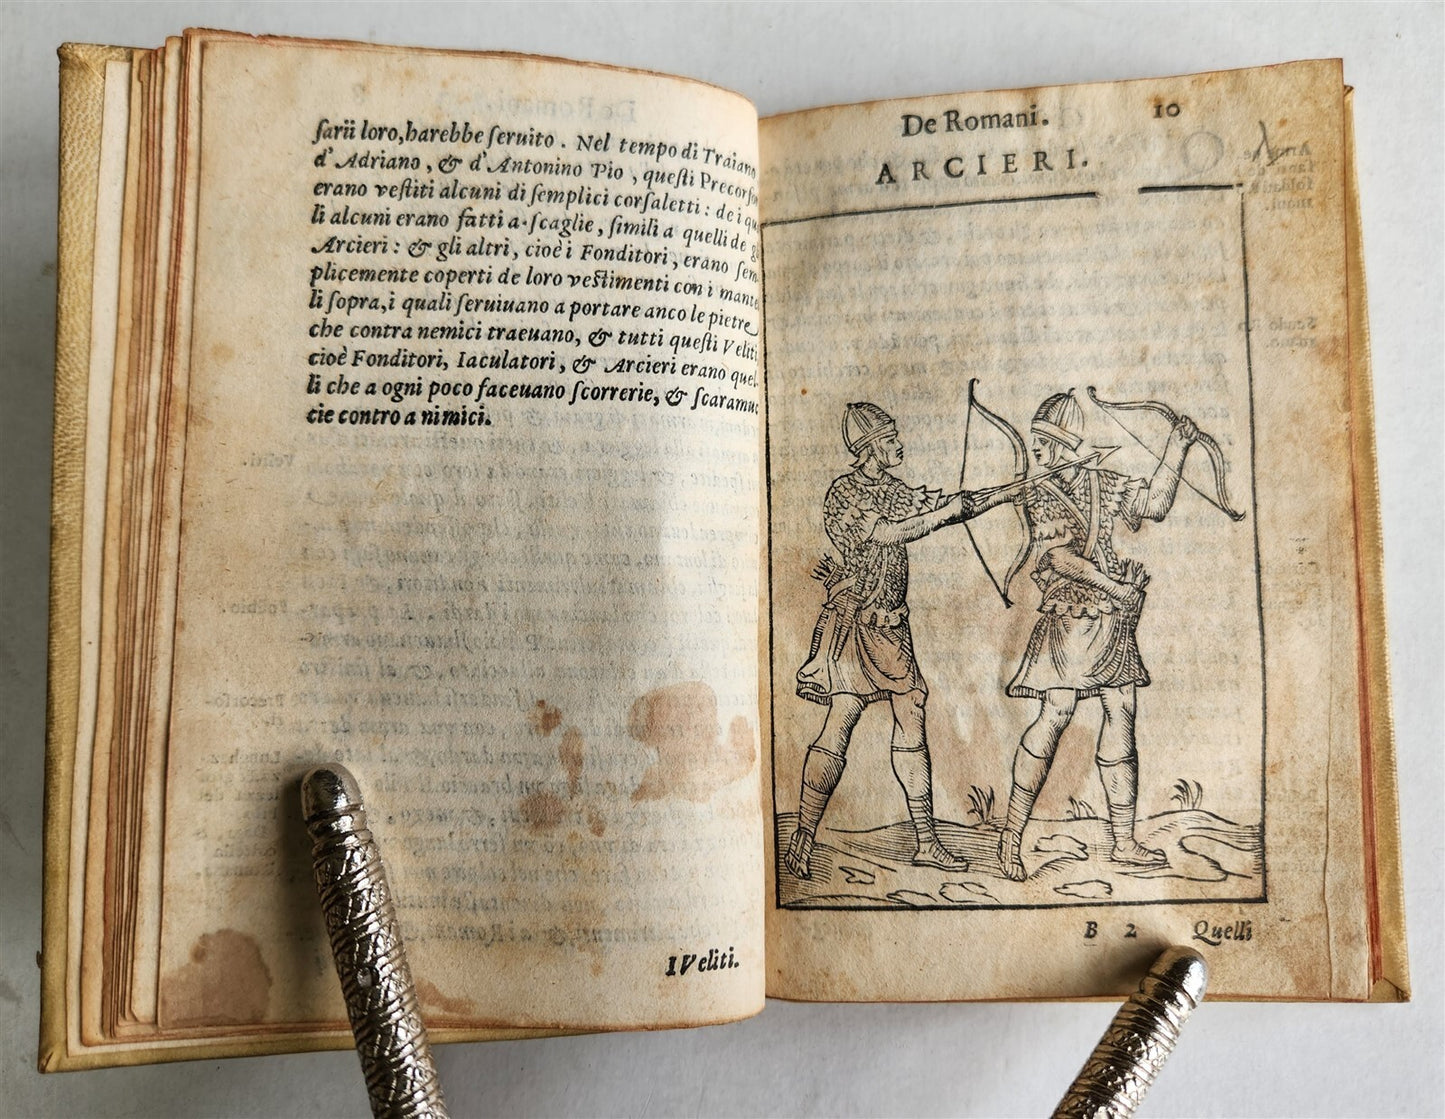 sarii loro, harebbe seruito. Nel tempo di Traiano
d'Adriano, & d'Antonino Pio, questi Precorso
erano vestiti alcuni di semplici corsaletti: de i qua
li alcuni erano fatti a scaglie, simili a quelli de gl
Arcieri: & gli altri, cioè i Fonditori, erano sem-
plicemente coperti de loro vestimenti con i mante
li sopra, i quali seruiuano a portare anco le pietre
che contra nemici traeuano, & tutti questi Veliti
cioè Fonditori, Iaculatori, & Arcieri erano quel-
li che a ogni poco faceuano scorrerie, & scaramuc
cie contro a nimici.
I Veliti.
De Romani. 10
ARCIERI.
B 2 Quelli